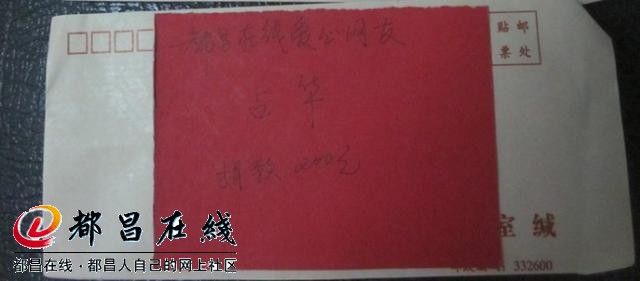 都昌在线爱心网友
占 华
捐款
贴 邮
票 处
室 缄
332600
都昌在線
都昌在线·都昌人自己的网上社区